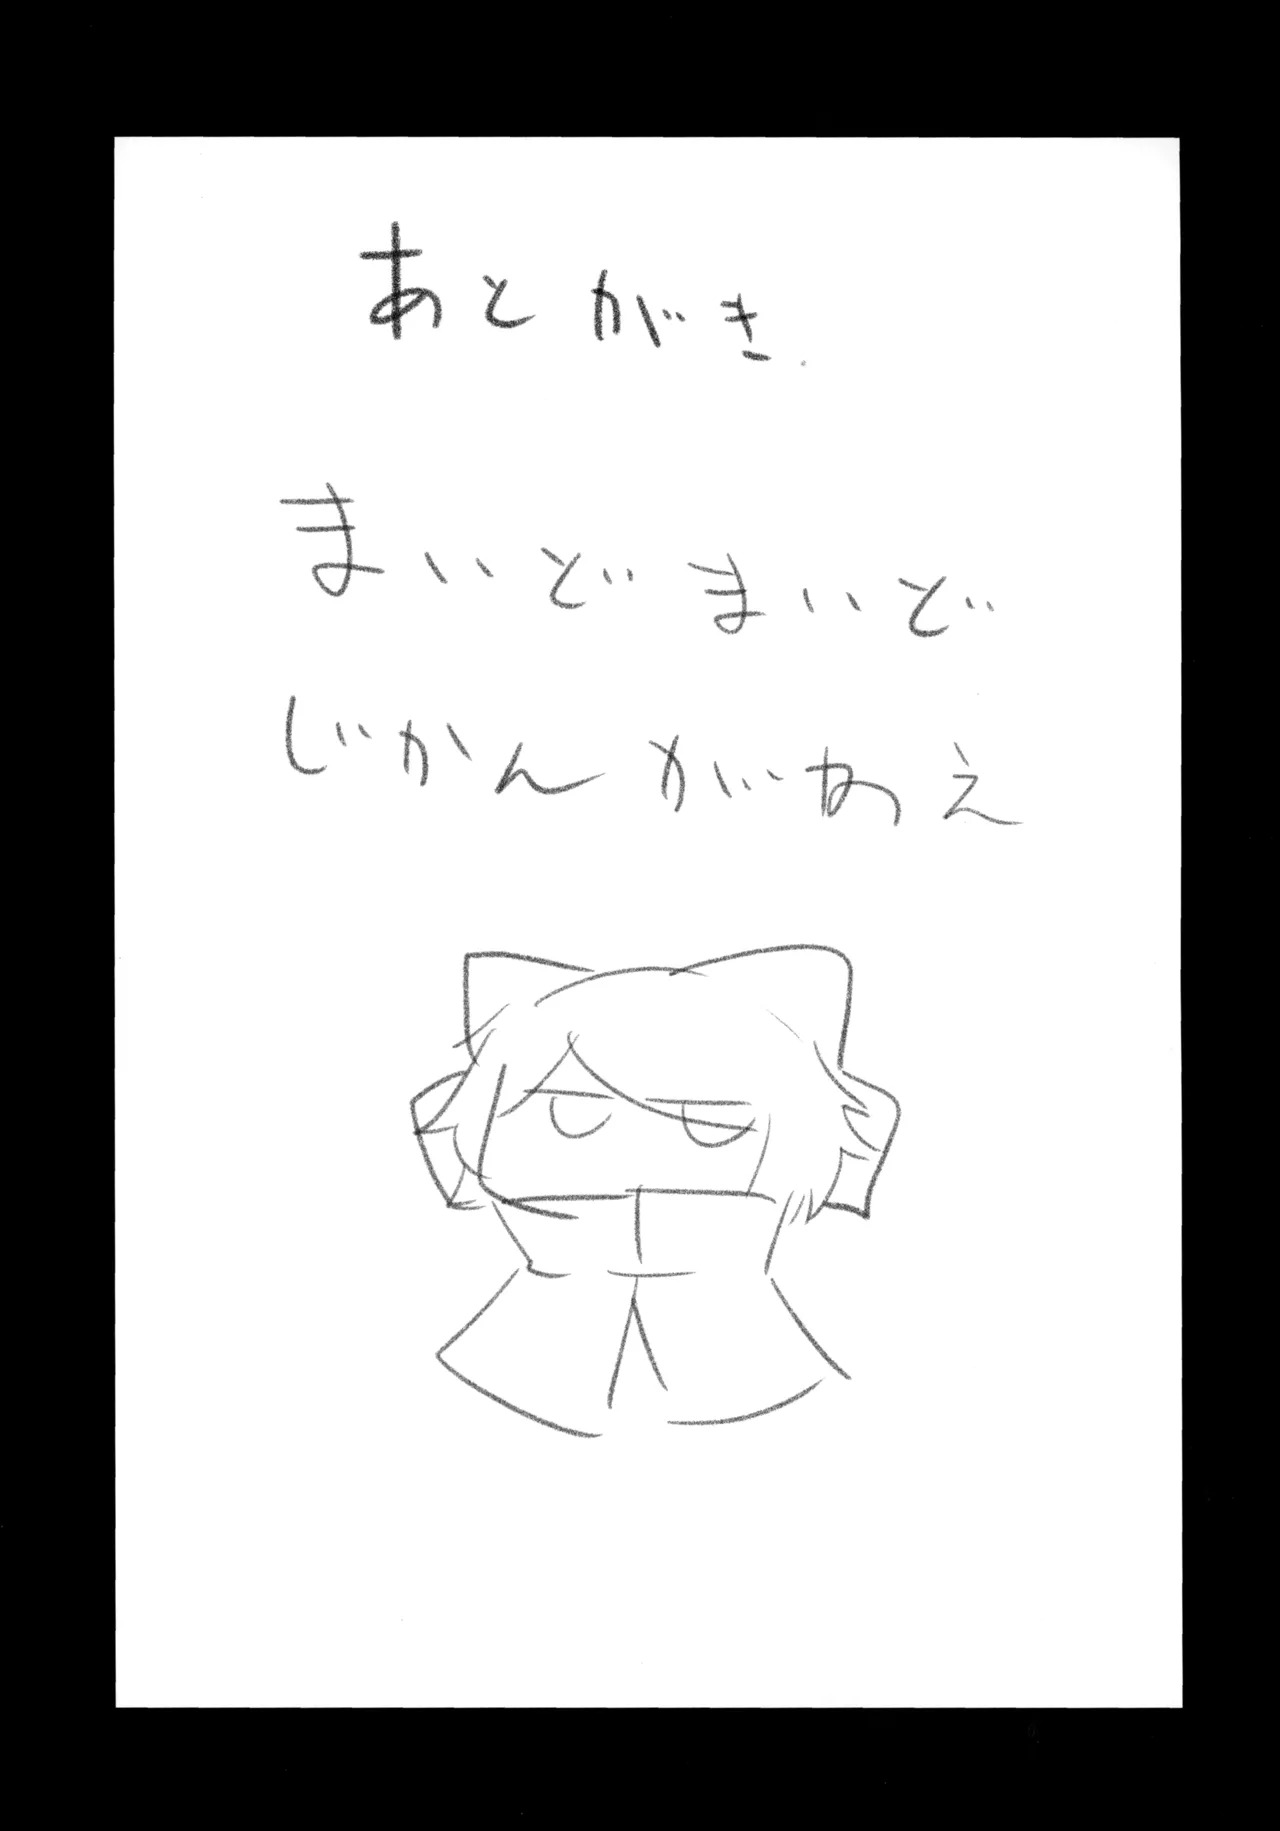 あとがき
まいどまいど
じかんがねえ